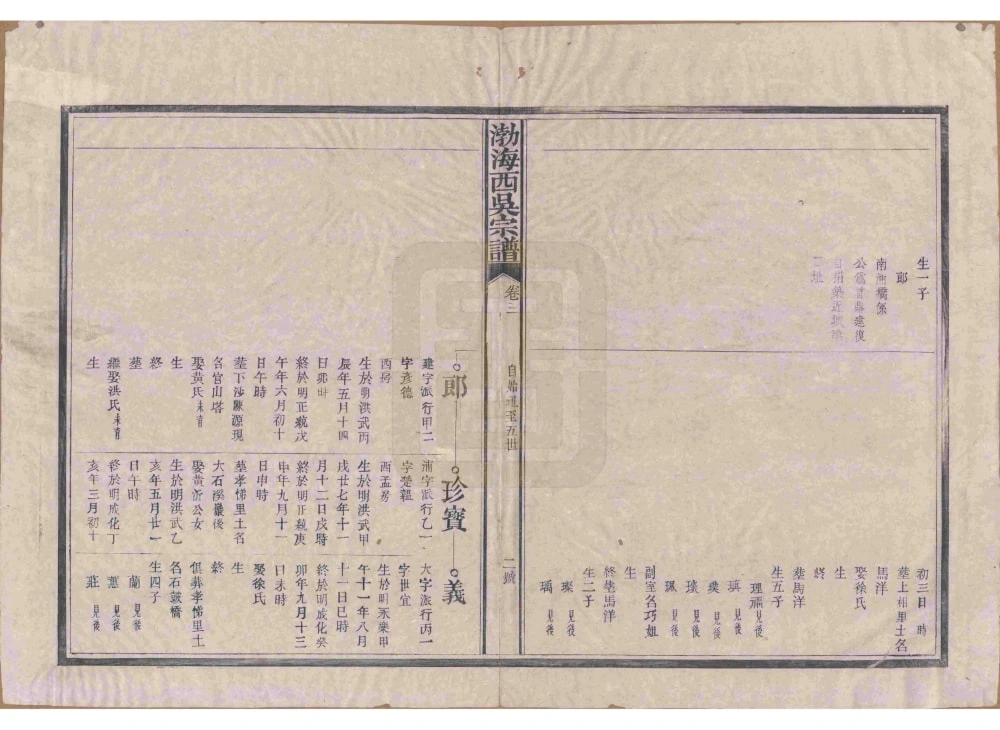 生一子
郎
南洲橋係
初三日時
墓上相里土名
馬洋
娶徐氏
生
終
墓馬洋
生五子
理 見後
璞 見後
見後
見後
副室名巧妲
生
終墓馬洋
生二子
璨 見後
瑀 見後
渤海西吳宗譜
卷二
自始遷至五世
二號
郎
建字派行甲二
字彥德
西房
生於明洪武丙
辰年五月十四
日卯時
終於明正統戊
午年六月初十
日午時
墓下沙陳源現
名官山塔
娶黃氏未育
生
終
墓
繼娶洪氏未育
生
珍寶
浦字派行乙一
字楚韞
西孟房
生於明洪武甲
戌廿七年十一
月十二日戌時
終於明正統庚
申年九月十一
日申時
墓孝悌里土名
大石溪嚴後
娶黃沂公女
生於明洪武乙
亥年五月廿一
日午時
終於明成化丁
亥年三月初十
義
大字派行丙一
字世宜
生於明永樂甲
午十一年八月
十一日巳時
終於明成化癸
卯年九月十三
日未時
娶徐氏
生
終
俱葬孝悌里土
名石鼓橋
生四子
蘭 見後
蕙 見後
莊 見後